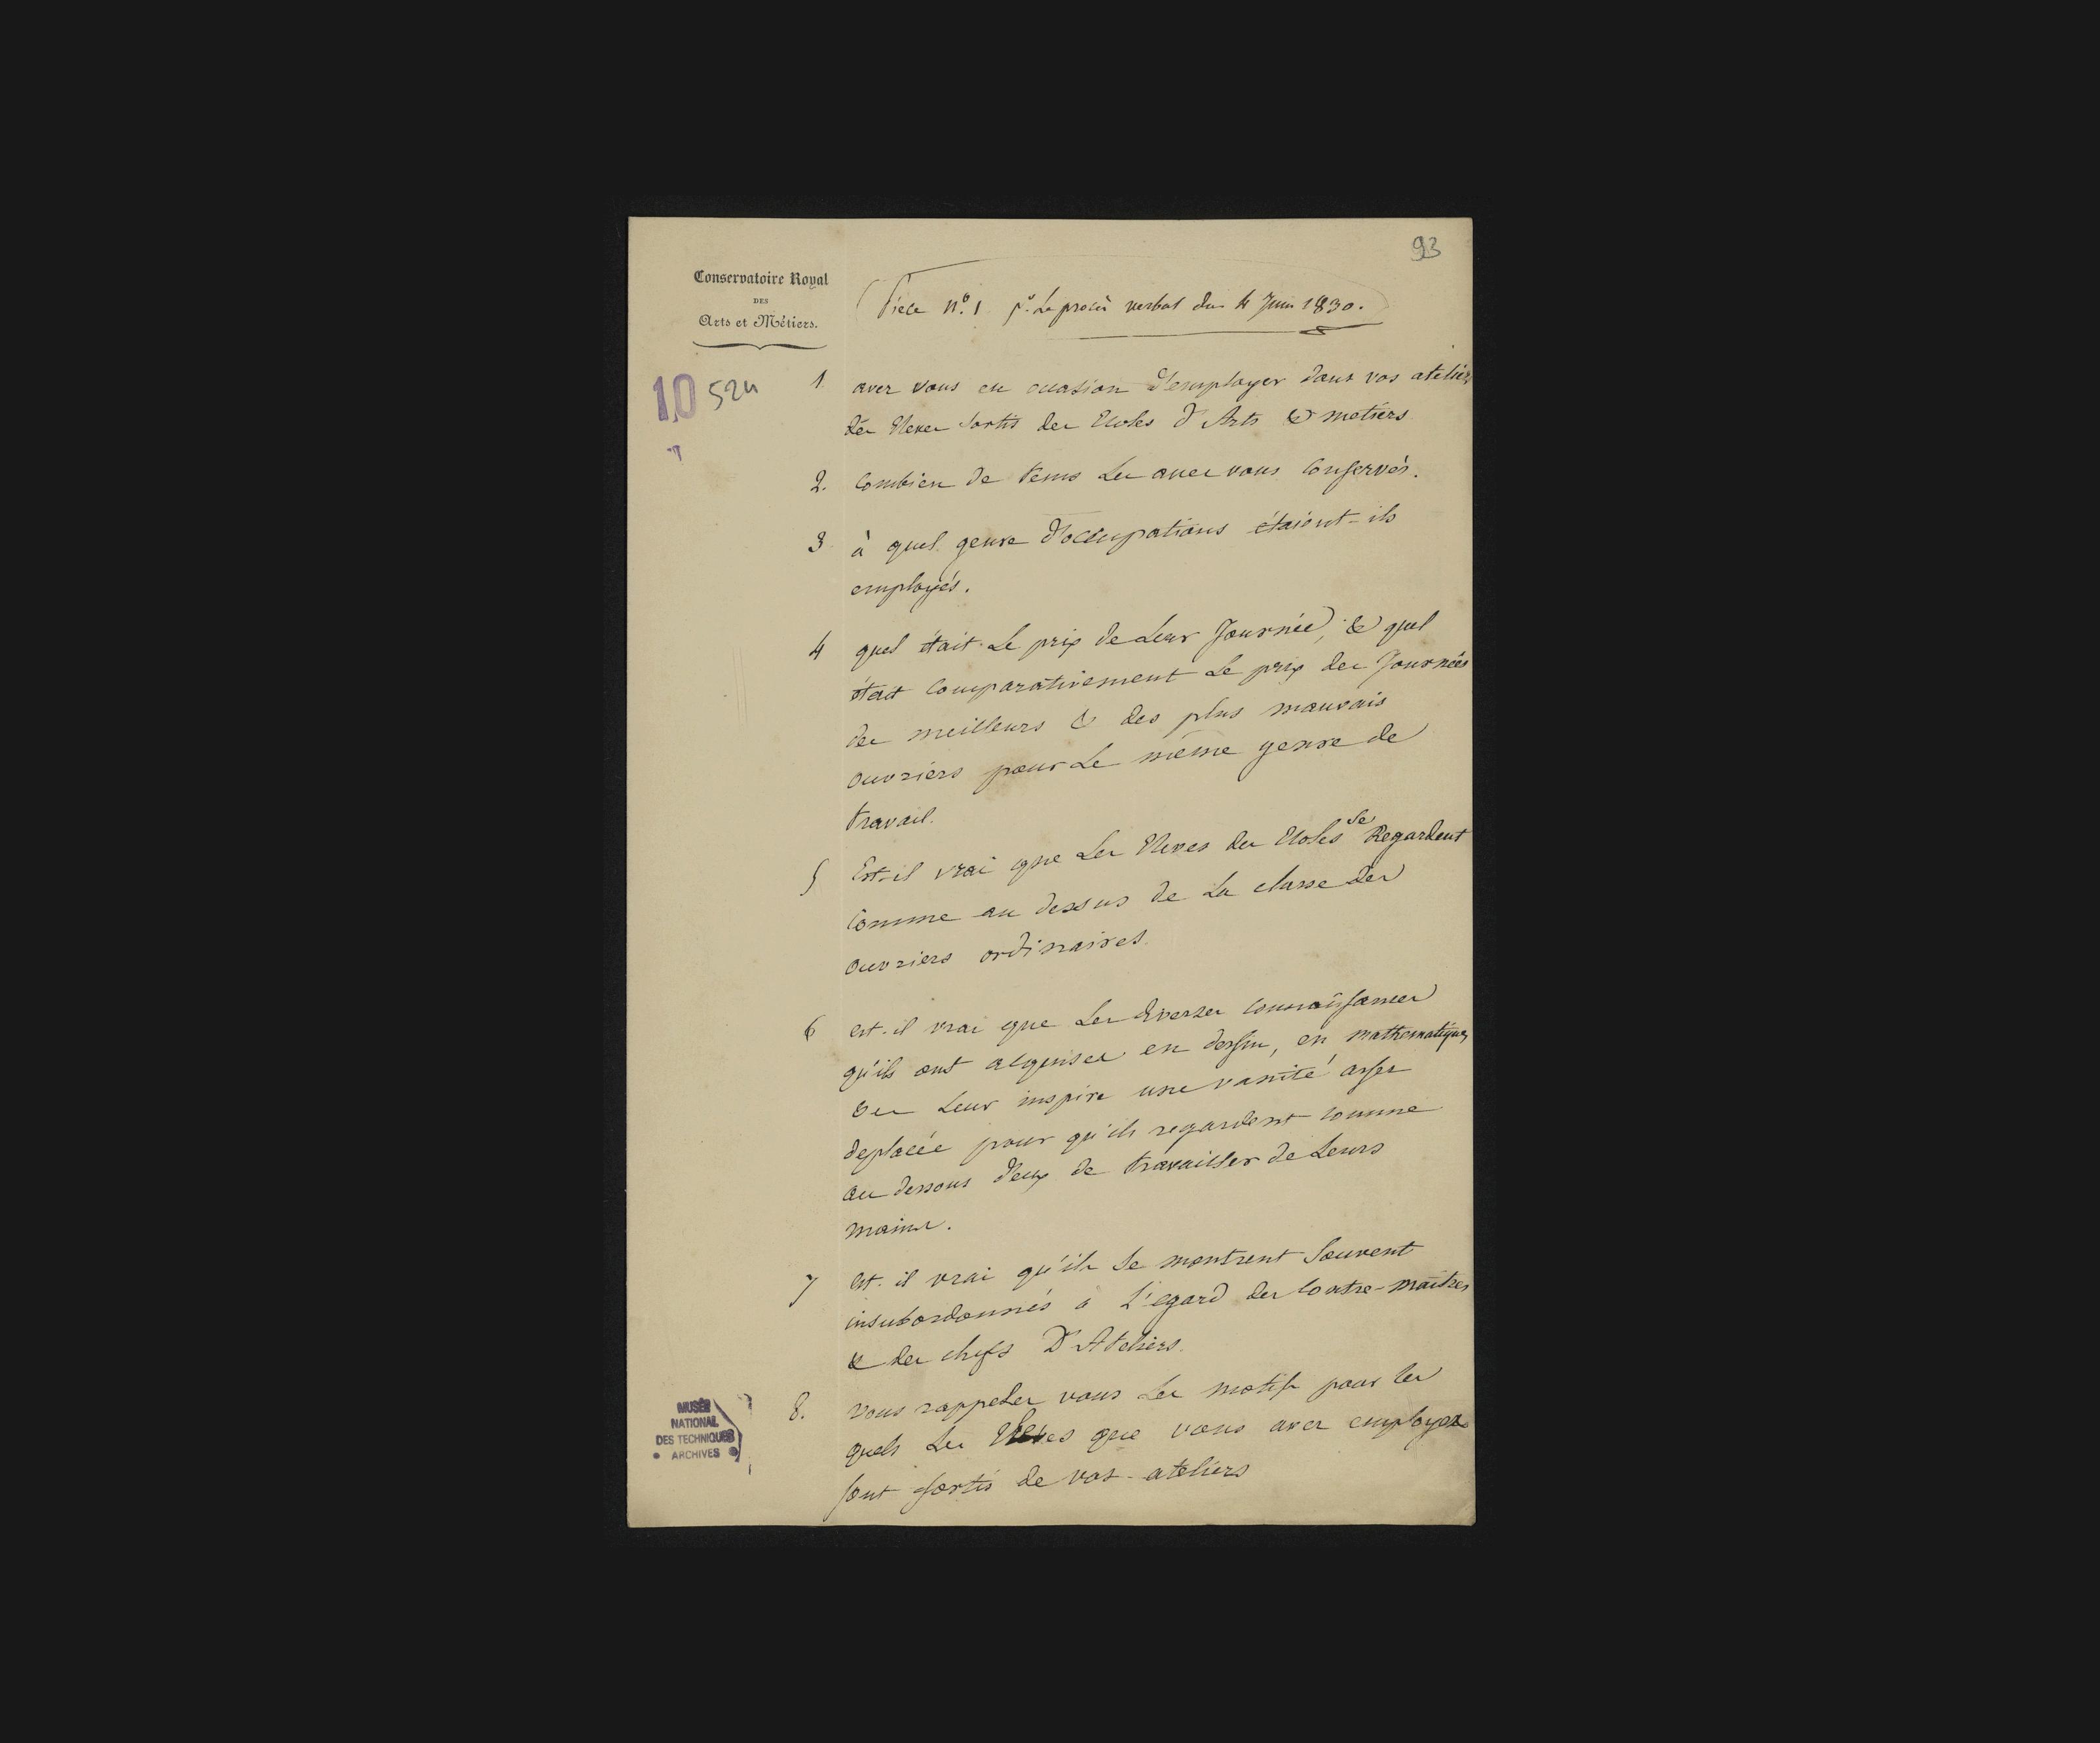 93
Conservatoire Royal
DES
Arts et Métiers.
Piece n.° 1 p.r Le procès verbal du 4 Juin 1830.
10 524
1. avez vous eu occasion d'employer dans vos ateliers
des Eleves sortis des Ecoles d'Arts & metiers
2. Combien de tems Les avez vous conservés.
3 à quel genre d'occupations étaient-ils
employés.
4 quel était Le prix de Leur Journée, & quel
était comparativement Le prix des Journées
des meilleurs & des plus mauvais
ouvriers pour Le même genre de
travail.
5 Est-il vrai que Les Eleves des Ecoles se Regardent
comme au dessus de La classe des
ouvriers ordinaires.
6 est-il vrai que Les diverses connaissances
qu'ils ont acquises en dessin, en mathematiques
Leur inspire une vanité assez
deplacée pour qu'ils regardent comme
au dessous d'eux de travailler de Leurs
mains.
7 est-il vrai qu'ils se montrent Souvent
insubordonnés a L'egard des Contre-maitres
& des chefs D'Ateliers.
8. vous rappelez vous Les motifs pour les
quels Les Eleves que vous avez employes
sont sortis de vos ateliers
MUSÉE
NATIONAL
DES TECHNIQUES
• ARCHIVES •